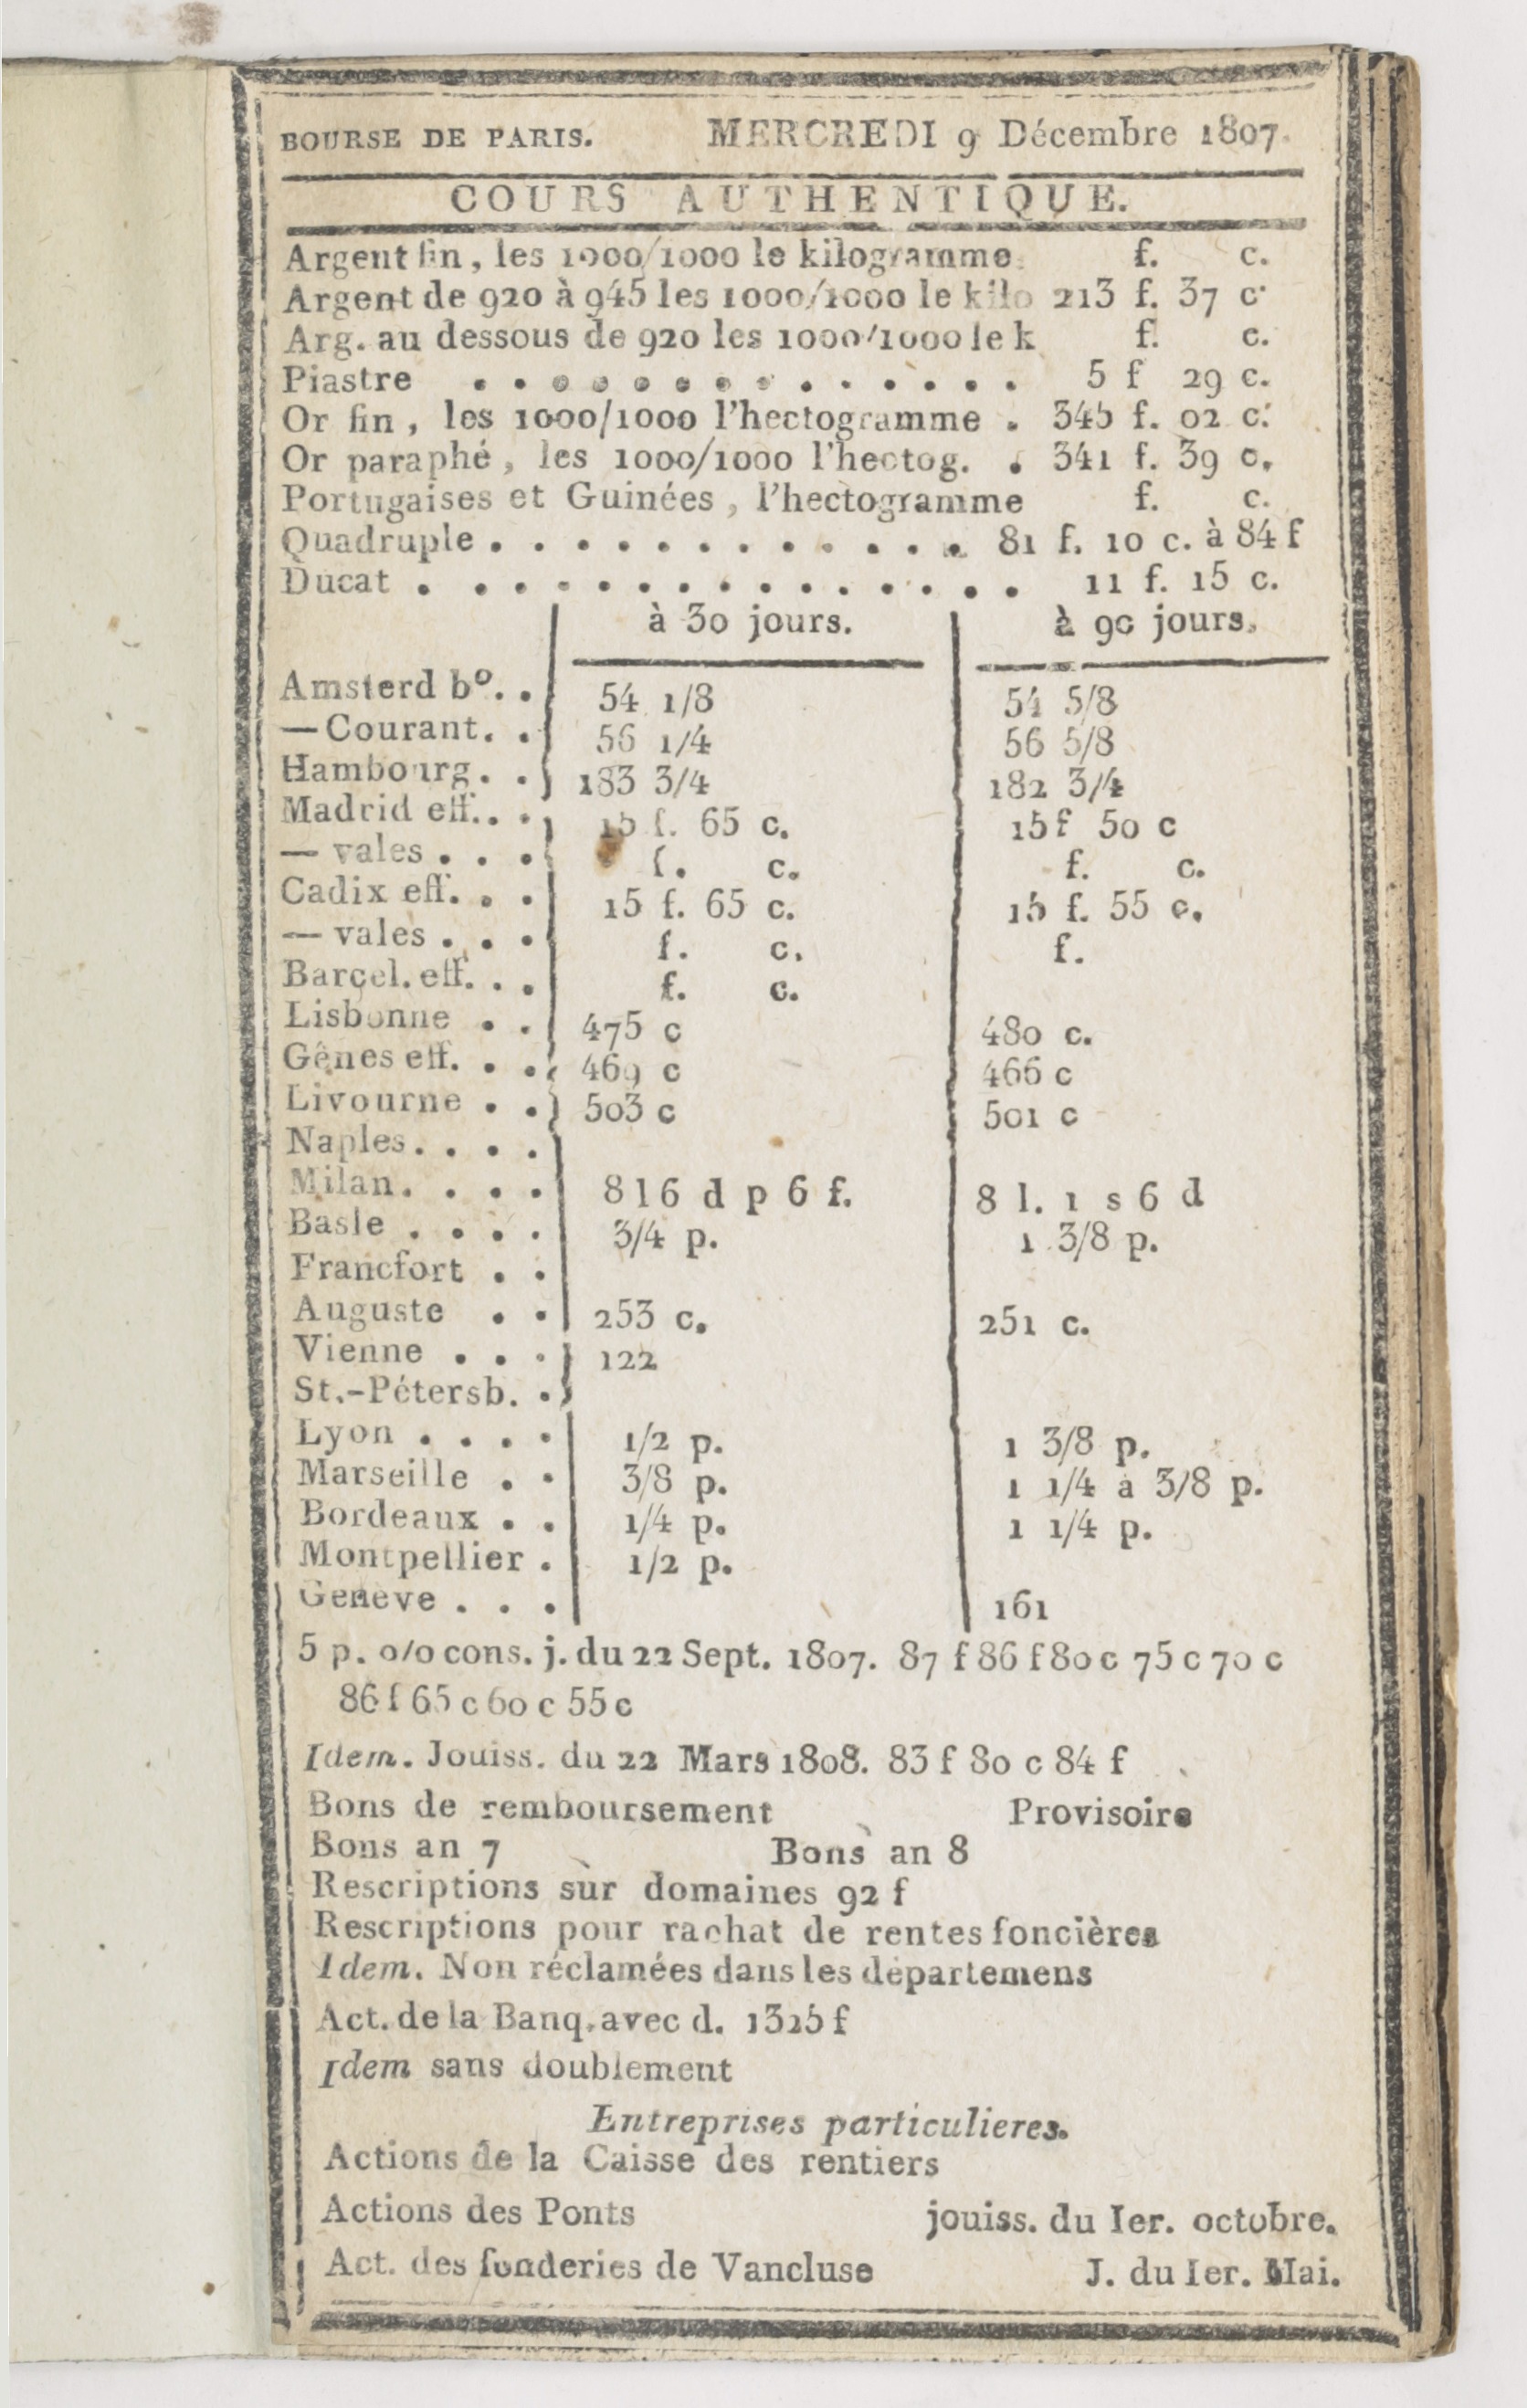 BOURSE DE PARIS. MERCREDI 9 Décembre 1807.
COURS AUTHENTIQUE.
Argent fin, les 1000/1000 le kilogramme f. c.
Argent de 920 à 945 les 1000/1000 le kilo 213 f. 37 c.
Arg. au dessous de 920 les 1000/1000 le k f. c.
Piastre . . . . . . . . . . . . . . 5 f 29 c.
Or fin, les 1000/1000 l'hectogramme . 345 f. 02 c.
Or paraphé, les 1000/1000 l'hectog. . 341 f. 39 c.
Portugaises et Guinées, l'hectogramme f. c.
Quadruple . . . . . . . . . . . . 81 f. 10 c. à 84 f
Ducat . . . . . . . . . . . . . . . 11 f. 15 c.
à 30 jours. à 90 jours.
Amsterd bº. . 54 1/8 54 5/8
—Courant. . 56 1/4 56 5/8
Hambourg. . 183 3/4 182 3/4
Madrid eff. . . 15 f. 65 c. 15 f 50 c
— vales . . . f. c. f. c.
Cadix eff. . . 15 f. 65 c. 15 f. 55 c.
— vales . . . f. c. f.
Barçel. eff. . . f. c.
Lisbonne . . 475 c 480 c.
Gênes eff. . . 469 c 466 c
Livourne . . 503 c 501 c
Naples. . . .
Milan. . . . 8 l 6 d p 6 f. 8 l. 1 s 6 d
Basle . . . . 3/4 p. 1 3/8 p.
Francfort . .
Auguste . . 253 c. 251 c.
Vienne . . . 122
St.-Pétersb. .
Lyon . . . . 1/2 p. 1 3/8 p.
Marseille . . 3/8 p. 1 1/4 à 3/8 p.
Bordeaux . . 1/4 p. 1 1/4 p.
Montpellier . 1/2 p.
Genève . . . 161
5 p. o/o cons. j. du 22 Sept. 1807. 87 f 86 f 80 c 75 c 70 c
86 f 65 c 60 c 55 c
Idem. Jouiss. du 22 Mars 1808. 83 f 80 c 84 f
Bons de remboursement Provisoire
Bons an 7 Bons an 8
Rescriptions sur domaines 92 f
Rescriptions pour rachat de rentes foncières
Idem. Non réclamées dans les départemens
Act. de la Banq. avec d. 1325 f
Idem sans doublement
Entreprises particulieres.
Actions de la Caisse des rentiers
Actions des Ponts jouiss. du Ier. octobre.
Act. des fonderies de Vancluse J. du Ier. Mai.